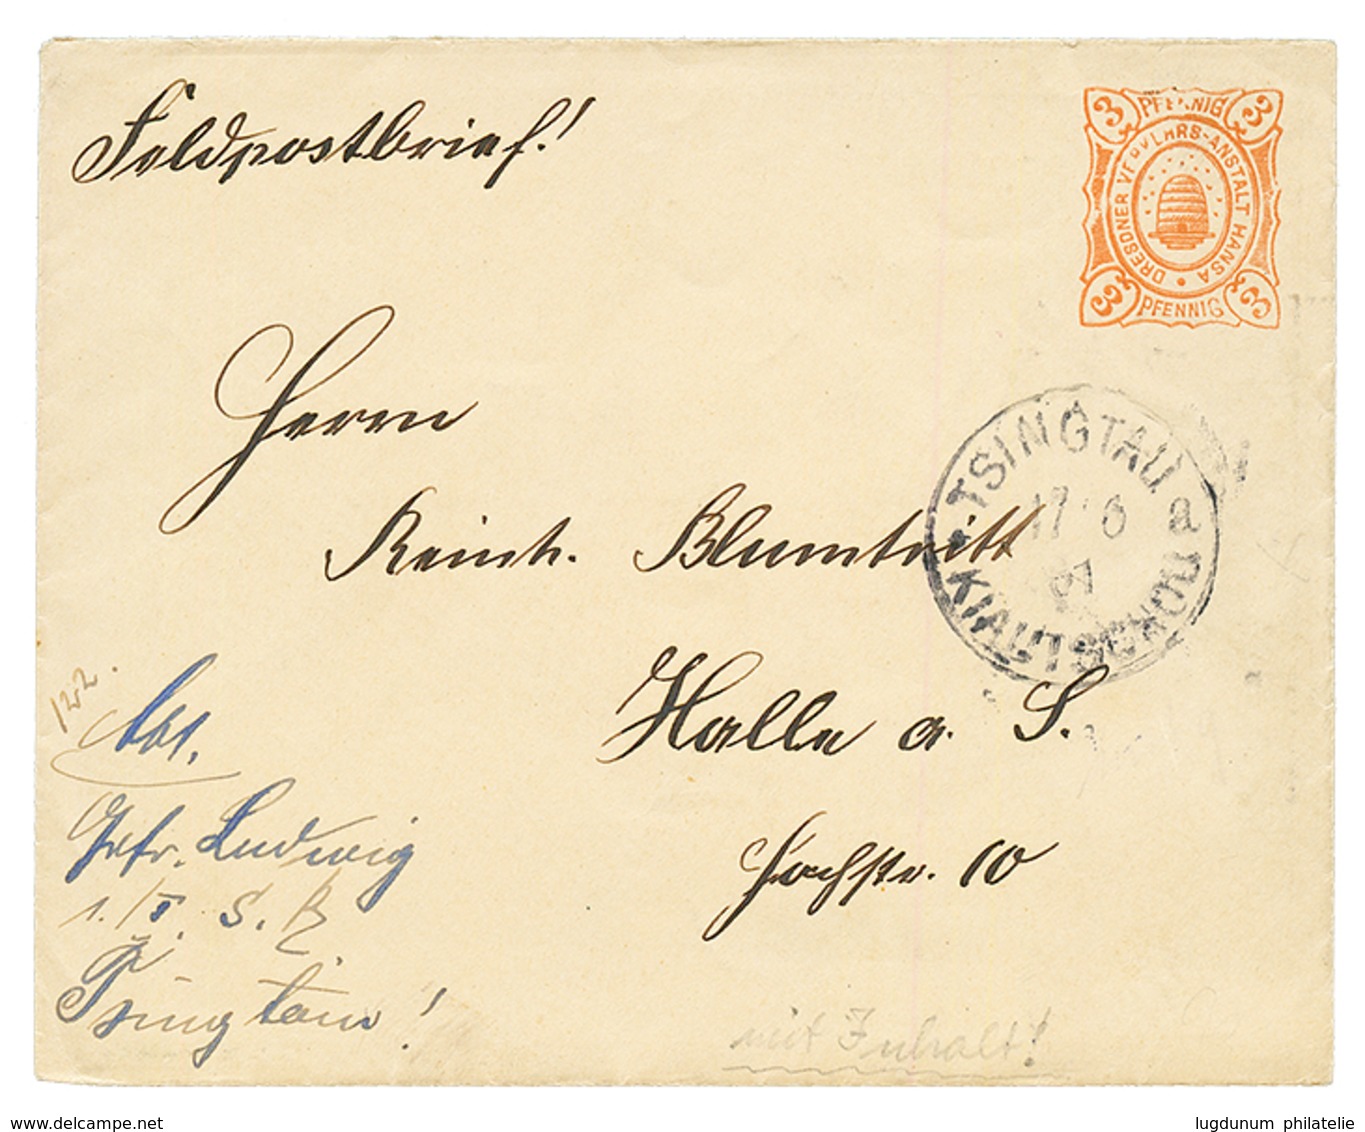 Feldpostbrief!
3 PFENNIG 3
DRESDNER VERKEHRS-ANSTALT HANSA
3 PFENNIG 3
Herrn
Reinh. Blumtritt
Halle a. S.
Hochstr. 10
TSINGTAU a
KIAUTSCHOU
122.
Abs.
Gefr. Ludwig
S. B
Tsingtau!
mit Inhalt!
www.delcampe.net
lugdunum philatelie